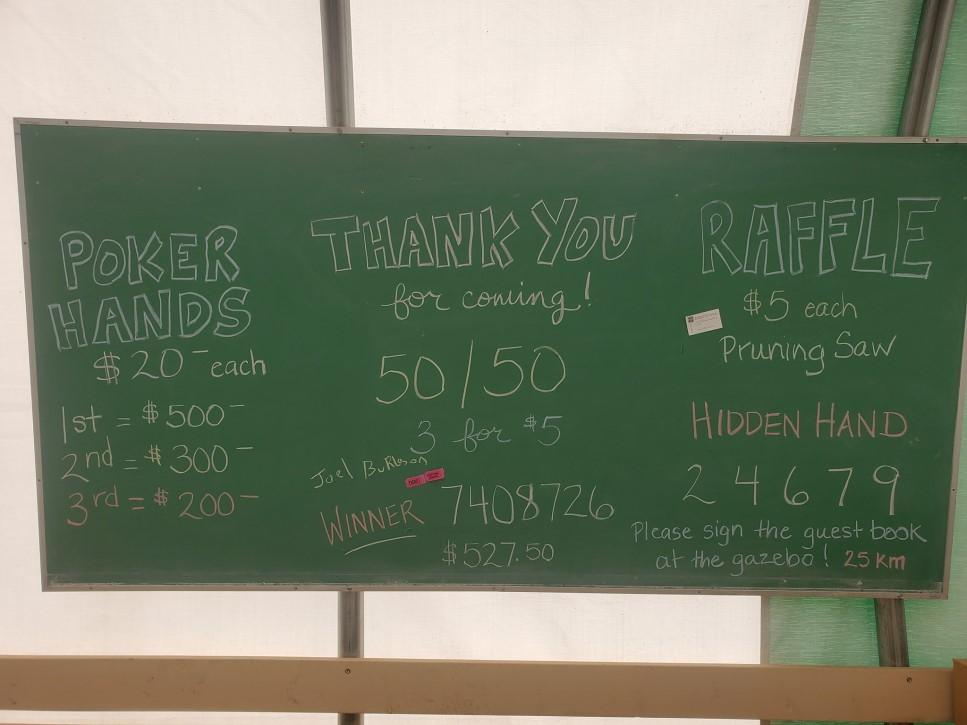 POKER
HANDS
$20- each
1st = $500-
2nd = $300-
3rd = $200-
THANK YOU
for coming!
50/50
3 for $5
Joel Burleson
WINNER 7408726
$527.50
RAFFLE
$5 each
Pruning Saw
HIDDEN HAND
2 4 6 7 9
Please sign the guest book
at the gazebo! 25 km